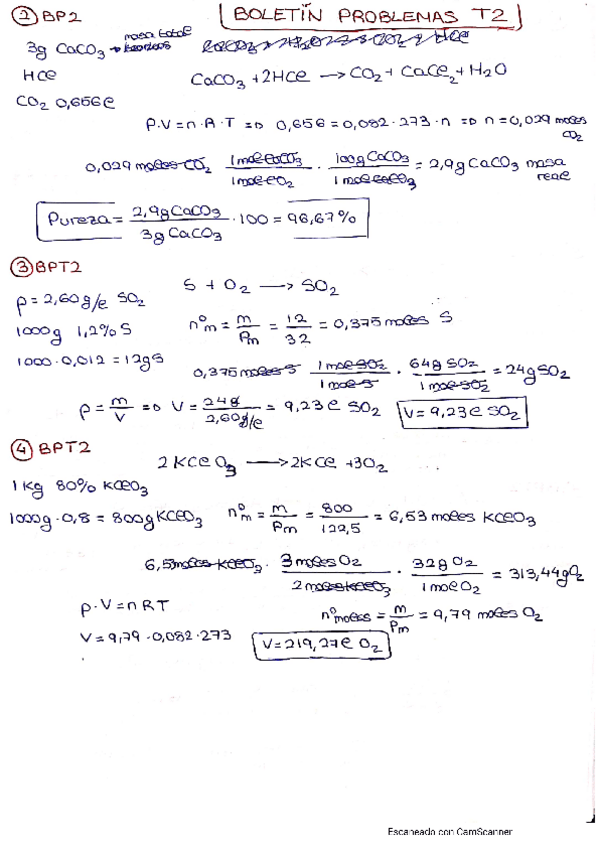 ② BP2 BOLETÍN PROBLEMAS T2
3g CaCO3 → masa total
HCl CaCO3 + 2HCl → CO2 + CaCl2 + H2O
CO2 0,656l
P·V = n·R·T => 0,656 = 0,082·273·n => n = 0,029 moles CO2
0,029 moles CO2 · 1mol CaCO3 / 1mol CO2 · 100g CaCO3 / 1mol CaCO3 = 2,9g CaCO3 masa real
Pureza = 2,9g CaCO3 / 3g CaCO3 · 100 = 96,67%
③ BPT2
S + O2 → SO2
ρ = 2,60g/l SO2
1000g 1,2% S nºm = m/Pm = 12/32 = 0,375 moles S
1000·0,012 = 12g S
0,375 moles S · 1mol SO2 / 1mol S · 64g SO2 / 1mol SO2 = 24g SO2
ρ = m/V => V = 24g / 2,60g/l = 9,23l SO2 V = 9,23l SO2
④ BPT2
2KClO3 → 2KCl + 3O2
1Kg 80% KClO3
1000g·0,8 = 800g KClO3 nºm = m/Pm = 800/122,5 = 6,53 moles KClO3
6,5 moles KClO3 · 3moles O2 / 2moles KClO3 · 32g O2 / 1mol O2 = 313,44g O2
P·V = nRT nºmoles = m/Pm = 9,79 moles O2
V = 9,79·0,082·273 V = 219,27l O2
Escaneado con CamScanner